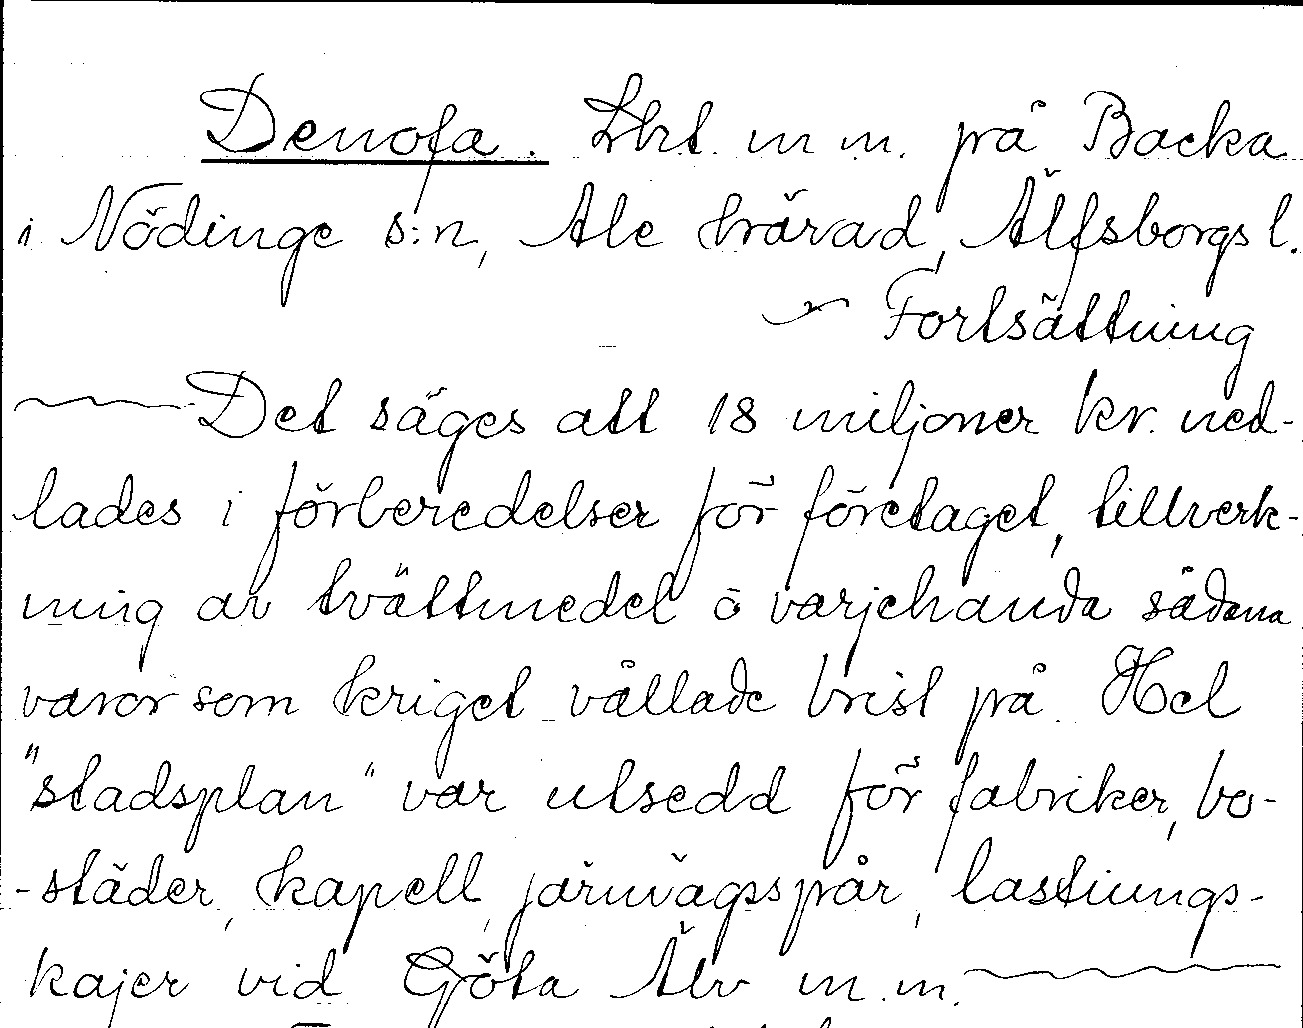 Denofa. Lht m m. på Backa
i Nödinge s:n, Ale härad, Älfsborgs l.
Fortsättning
Det säges att 18 miljoner kr. ned-
lades i förberedelser för företaget, tillverk-
ning av tvättmedel o varjehanda sådana
varor som kriget vållade brist på. Hel
"stadsplan" var utsedd för fabriker, bo-
-städer, kapell, järnvägsspår, lastnings-
kajer vid Göta Älv m.m.